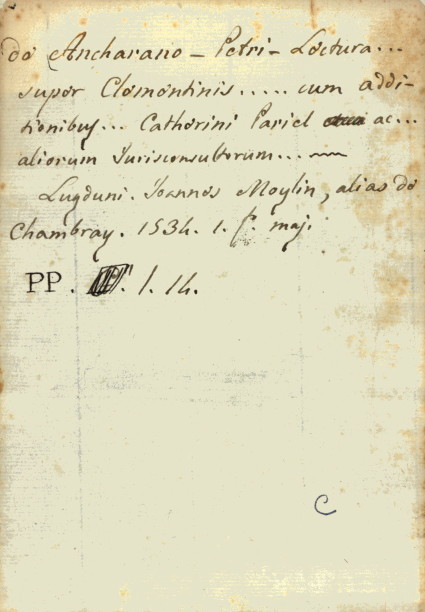 de Ancharano - Petri - Lectura...
super Clementinis..... cum addi-
tionibus... Catherini Pariel ac...
aliorum Jurisconsultorum...
Lugduni. Joannes Moylin, alias de
Chambray. 1534. 1. f. maj.
PP. 1. 14.
C